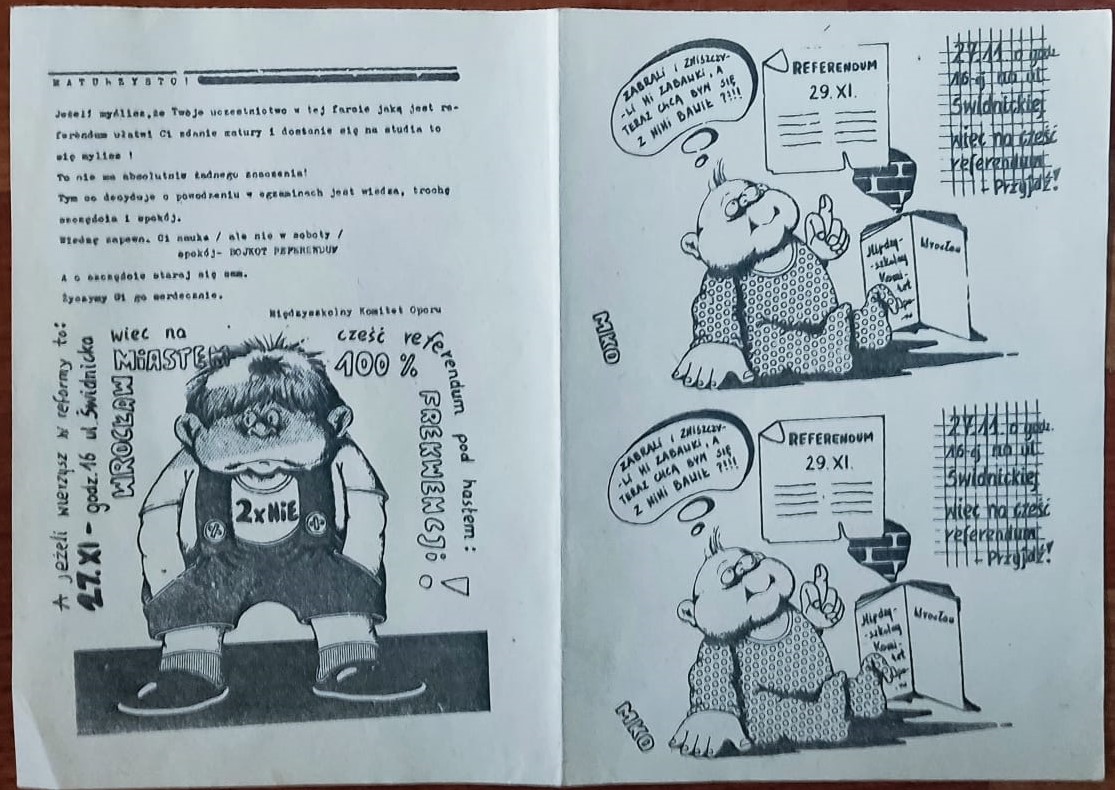 MATURZYSTO!
Jeżeli myślisz, że Twoje uczestnictwo w tej farsie jaką jest re-
ferendum ułatwi Ci zdanie matury i dostanie się na studia to
się mylisz !
To nie ma absolutnie żadnego znaczenia!
Tym co decyduje o powodzeniu w egzaminach jest wiedza, trochę
szczęścia i spokój.
Wiedzę zapewn. Ci nauka / ale nie w soboty /
spokój- BOJKOT REFERENDUM
A o szczęście staraj się sam.
Życzymy Ci go serdecznie.
Międzyszkolny Komitet Oporu
A jeżeli wierzysz w reformy to:
27.XI - godz. 16 ul Świdnicka
wiec na cześć referendum pod hasłem:
WROCŁAW MIASTEM 100 % FREKWENCJI!
2xNIE
ZABRALI I ZNISZCZY-
-LI MI ZABAWKI, A
TERAZ CHCĄ BYM SIĘ
Z NIMI BAWIŁ ?!!!
REFERENDUM
29.XI.
27.11 o godz.
16-ej na ul.
Świdnickiej
wiec na cześć
referendum
- Przyjdź!
Między-
-szkolny
Komi-
tet
Opo-
ru
Wrocław
MKO
ZABRALI I ZNISZCZY-
-LI MI ZABAWKI, A
TERAZ CHCĄ BYM SIĘ
Z NIMI BAWIŁ ?!!!
REFERENDUM
29.XI.
27.11 o godz.
16-ej na ul.
Świdnickiej
wiec na cześć
referendum
- Przyjdź!
Między-
-szkolny
Komi-
tet
Opo-
ru
Wrocław
MKO